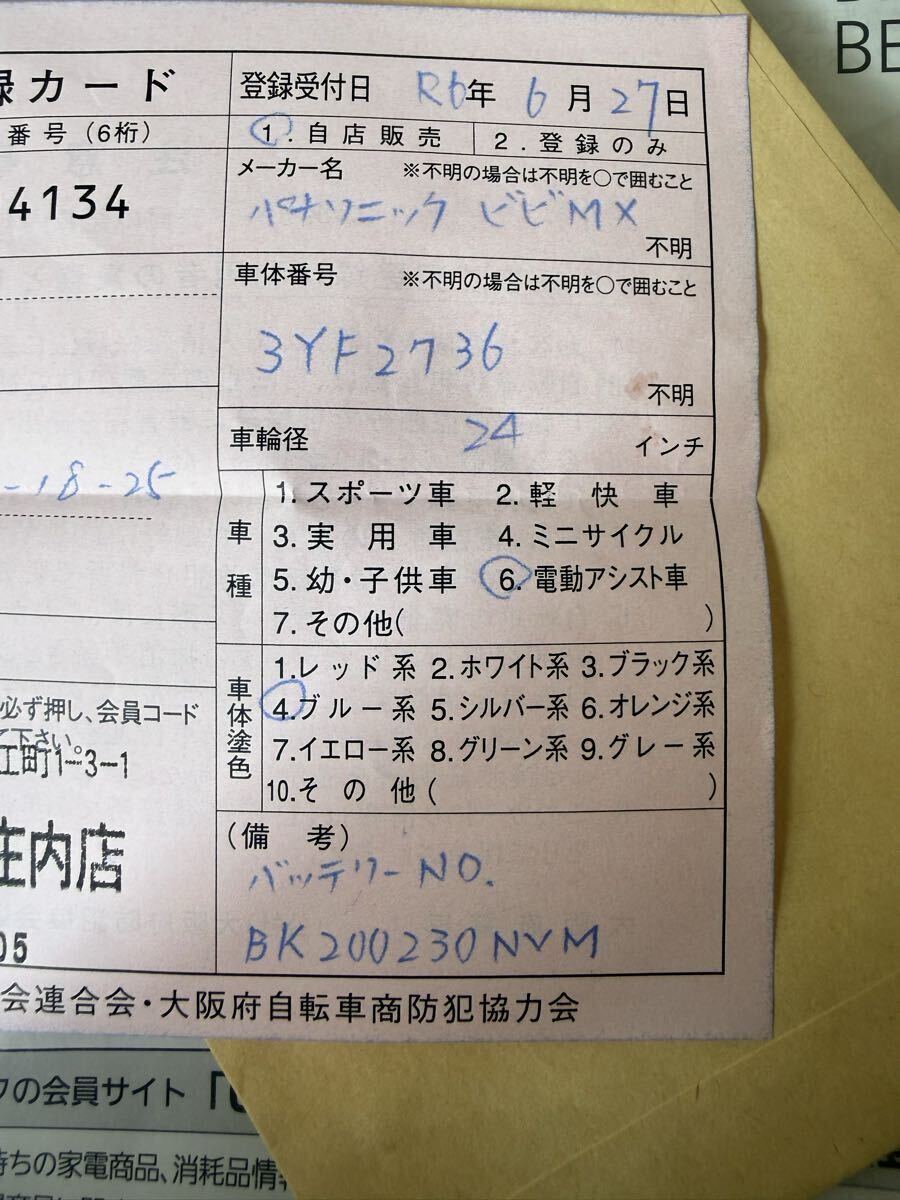 録カード
番号(6桁)
4134
-18-25
必ず押し、会員コード
て下さい。
江町1-3-1
庄内店
05
登録受付日 R6年 6月 27日
1.自店販売 2.登録のみ
メーカー名 ※不明の場合は不明を○で囲むこと
パナソニック ビビMX
不明
車体番号 ※不明の場合は不明を○で囲むこと
3YF2736
不明
車輪径 24 インチ
車種
1.スポーツ車 2.軽快車
3.実用車 4.ミニサイクル
5.幼・子供車 6.電動アシスト車
7.その他( )
車体塗色
1.レッド系 2.ホワイト系 3.ブラック系
4.ブルー系 5.シルバー系 6.オレンジ系
7.イエロー系 8.グリーン系 9.グレー系
10.その他( )
(備考)
バッテリーNO.
BK200230NVM
会連合会・大阪府自転車商防犯協力会
クの会員サイト「
持ちの家電商品、消耗品情
BE